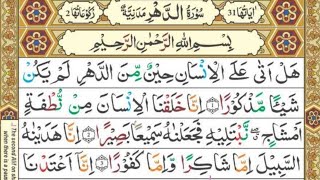 اٰيَاتُهَا 31 سُوْرَةُ الدَّهْرِ مَدَنِيَّةٌ رُكُوْعَاتُهَا 2
بِسْمِ اللهِ الرَّحْمٰنِ الرَّحِيْمِ
هَلْ اَتٰى عَلَى الْاِنْسَانِ حِيْنٌ مِّنَ الدَّهْرِ لَمْ يَكُنْ
شَيْـًٔا مَّذْكُوْرًا ۝ اِنَّا خَلَقْنَا الْاِنْسَانَ مِنْ نُّطْفَةٍ
اَمْشَاجٍ ۖ نَّبْتَلِيْهِ فَجَعَلْنٰهُ سَمِيْعًۢا بَصِيْرًا ۝ اِنَّا هَدَيْنٰهُ
السَّبِيْلَ اِمَّا شَاكِرًا وَّاِمَّا كَفُوْرًا ۝ اِنَّاۤ اَعْتَدْنَا